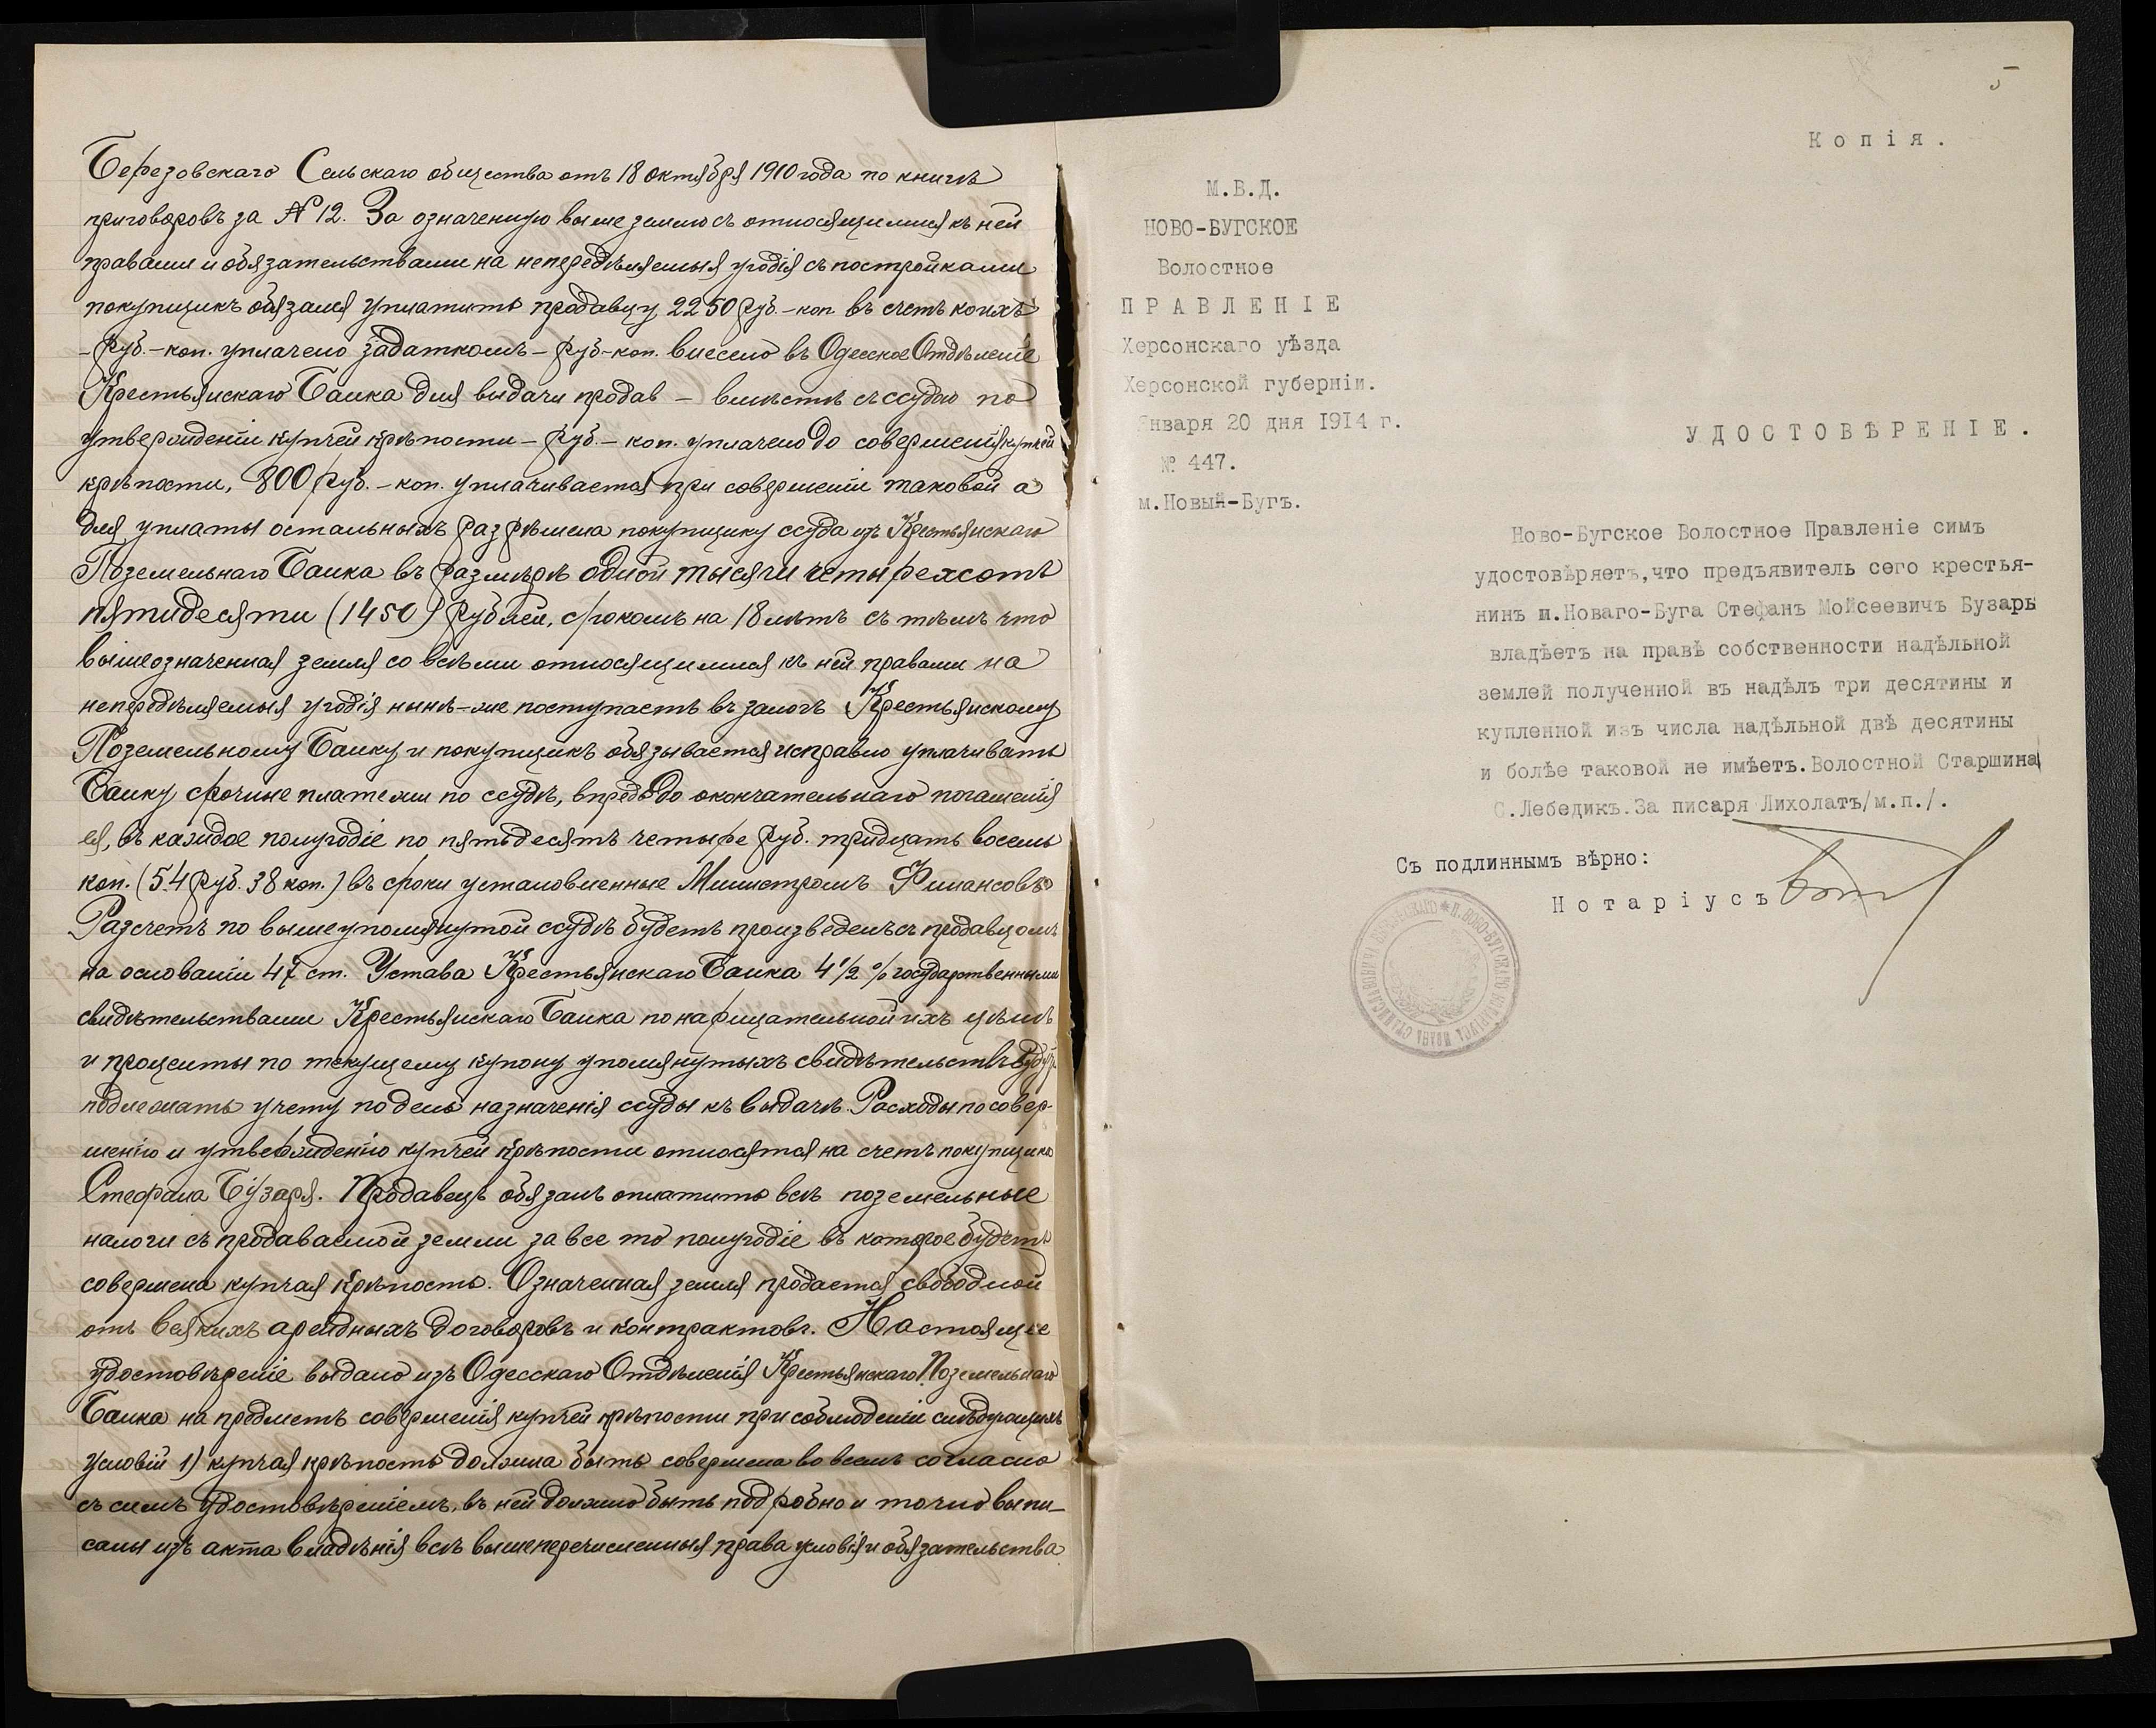 Березовскаго Сельскаго общества отъ 18 октября 1910 года по книгѣ
приговоровъ за № 12. За означенную выше землю съ относящимися къ ней
правами и обязательствами на непередѣляемыя угодія съ постройками
покупщикъ обязался уплатить продавцу 2250 руб. - коп. въ счетъ коихъ
- руб. - коп. уплачено задаткомъ - руб - коп. внесено въ Одесское Отдѣленіе
Крестьянскаго Банка для выдачи продав - вмѣстѣ съ ссудою по
утвержденіи купчей крѣпости - руб. - коп. уплачено до совершенія купчей
крѣпости, 800 руб. - коп. уплачивается при совершеніи таковой а
для уплаты остальныхъ разрѣшена покупщику ссуда изъ Крестьянскаго
Поземельнаго Банка въ размѣрѣ одной тысячи четырехсотъ
пятидесяти (1450) рублей, срокомъ на 18 лѣтъ съ тѣмъ что
вышеозначенная земля со всѣми относящимися къ ней правами на
непередѣляемыя угодія нынѣ-же поступаетъ въ залогъ Крестьянскому
Поземельному Банку и покупщикъ обязывается исправно уплачивать
Банку срочные платежи по ссудѣ, впредь до окончательнаго погашенія
ея, въ каждое полугодіе по пятьдесятъ четыре руб. тридцать восемь
коп. (54 руб. 38 коп.) въ сроки установленные Министромъ Финансовъ
Разсчетъ по вышеупомянутой ссудѣ будетъ произведенъ съ продавцомъ
на основаніи 47 ст. Устава Крестьянскаго Банка 4 1/2 % государственными
свидѣтельствами Крестьянскаго Банка по нарицательной ихъ цѣнѣ
и проценты по текущему купону упомянутыхъ свидѣтельствъ будутъ
подлежать учету по день назначенія ссуды къ выдачѣ. Расходы по совер-
шенію и утвержденію купчей крѣпости относятся на счетъ покупщика
Стефана Бузаря. Продавецъ обязанъ оплатить всѣ поземельные
налоги съ продаваемой земли за все то полугодіе въ которое будетъ
совершена купчая крѣпость. Означенная земля продается свободной
отъ всякихъ арендныхъ договоровъ и контрактовъ. Настоящее
удостовѣреніе выдано изъ Одесскаго Отдѣленія Крестьянскаго Поземельнаго
Банка на предметъ совершенія купчей крѣпости при соблюденіи слѣдующихъ
условій 1) купчая крѣпость должна быть совершена во всемъ согласно
съ симъ удостовѣреніемъ, въ ней должно быть подробно и точно выпи-
саны изъ акта владѣнія всѣ вышеперечисленныя права условія и обязательства
5
Копія.
М.В.Д.
НОВО-БУГСКОЕ
Волостное
ПРАВЛЕНІЕ
Херсонскаго уѣзда
Херсонской губерніи.
Января 20 дня 1914 г.
№ 447.
м.Новый-Бугъ.
УДОСТОВѢРЕНІЕ.
Ново-Бугское Волостное Правленіе симъ
удостовѣряетъ,что предъявитель сего крестья-
нинъ м.Новаго-Буга Стефанъ Мойсеевичъ Бузарь
владѣетъ на правѣ собственности надѣльной
землей полученной въ надѣлъ три десятины и
купленной изъ числа надѣльной двѣ десятины
и болѣе таковой не имѣетъ.Волостной Старшина
С.Лебедикъ.За писаря Лихолатъ/м.п./.
Съ подлиннымъ вѣрно:
Нотаріусъ
НОВО-БУГСКАГО НОТАРІУСА ИВАНЪ СТАНИСЛАВОВИЧЪ